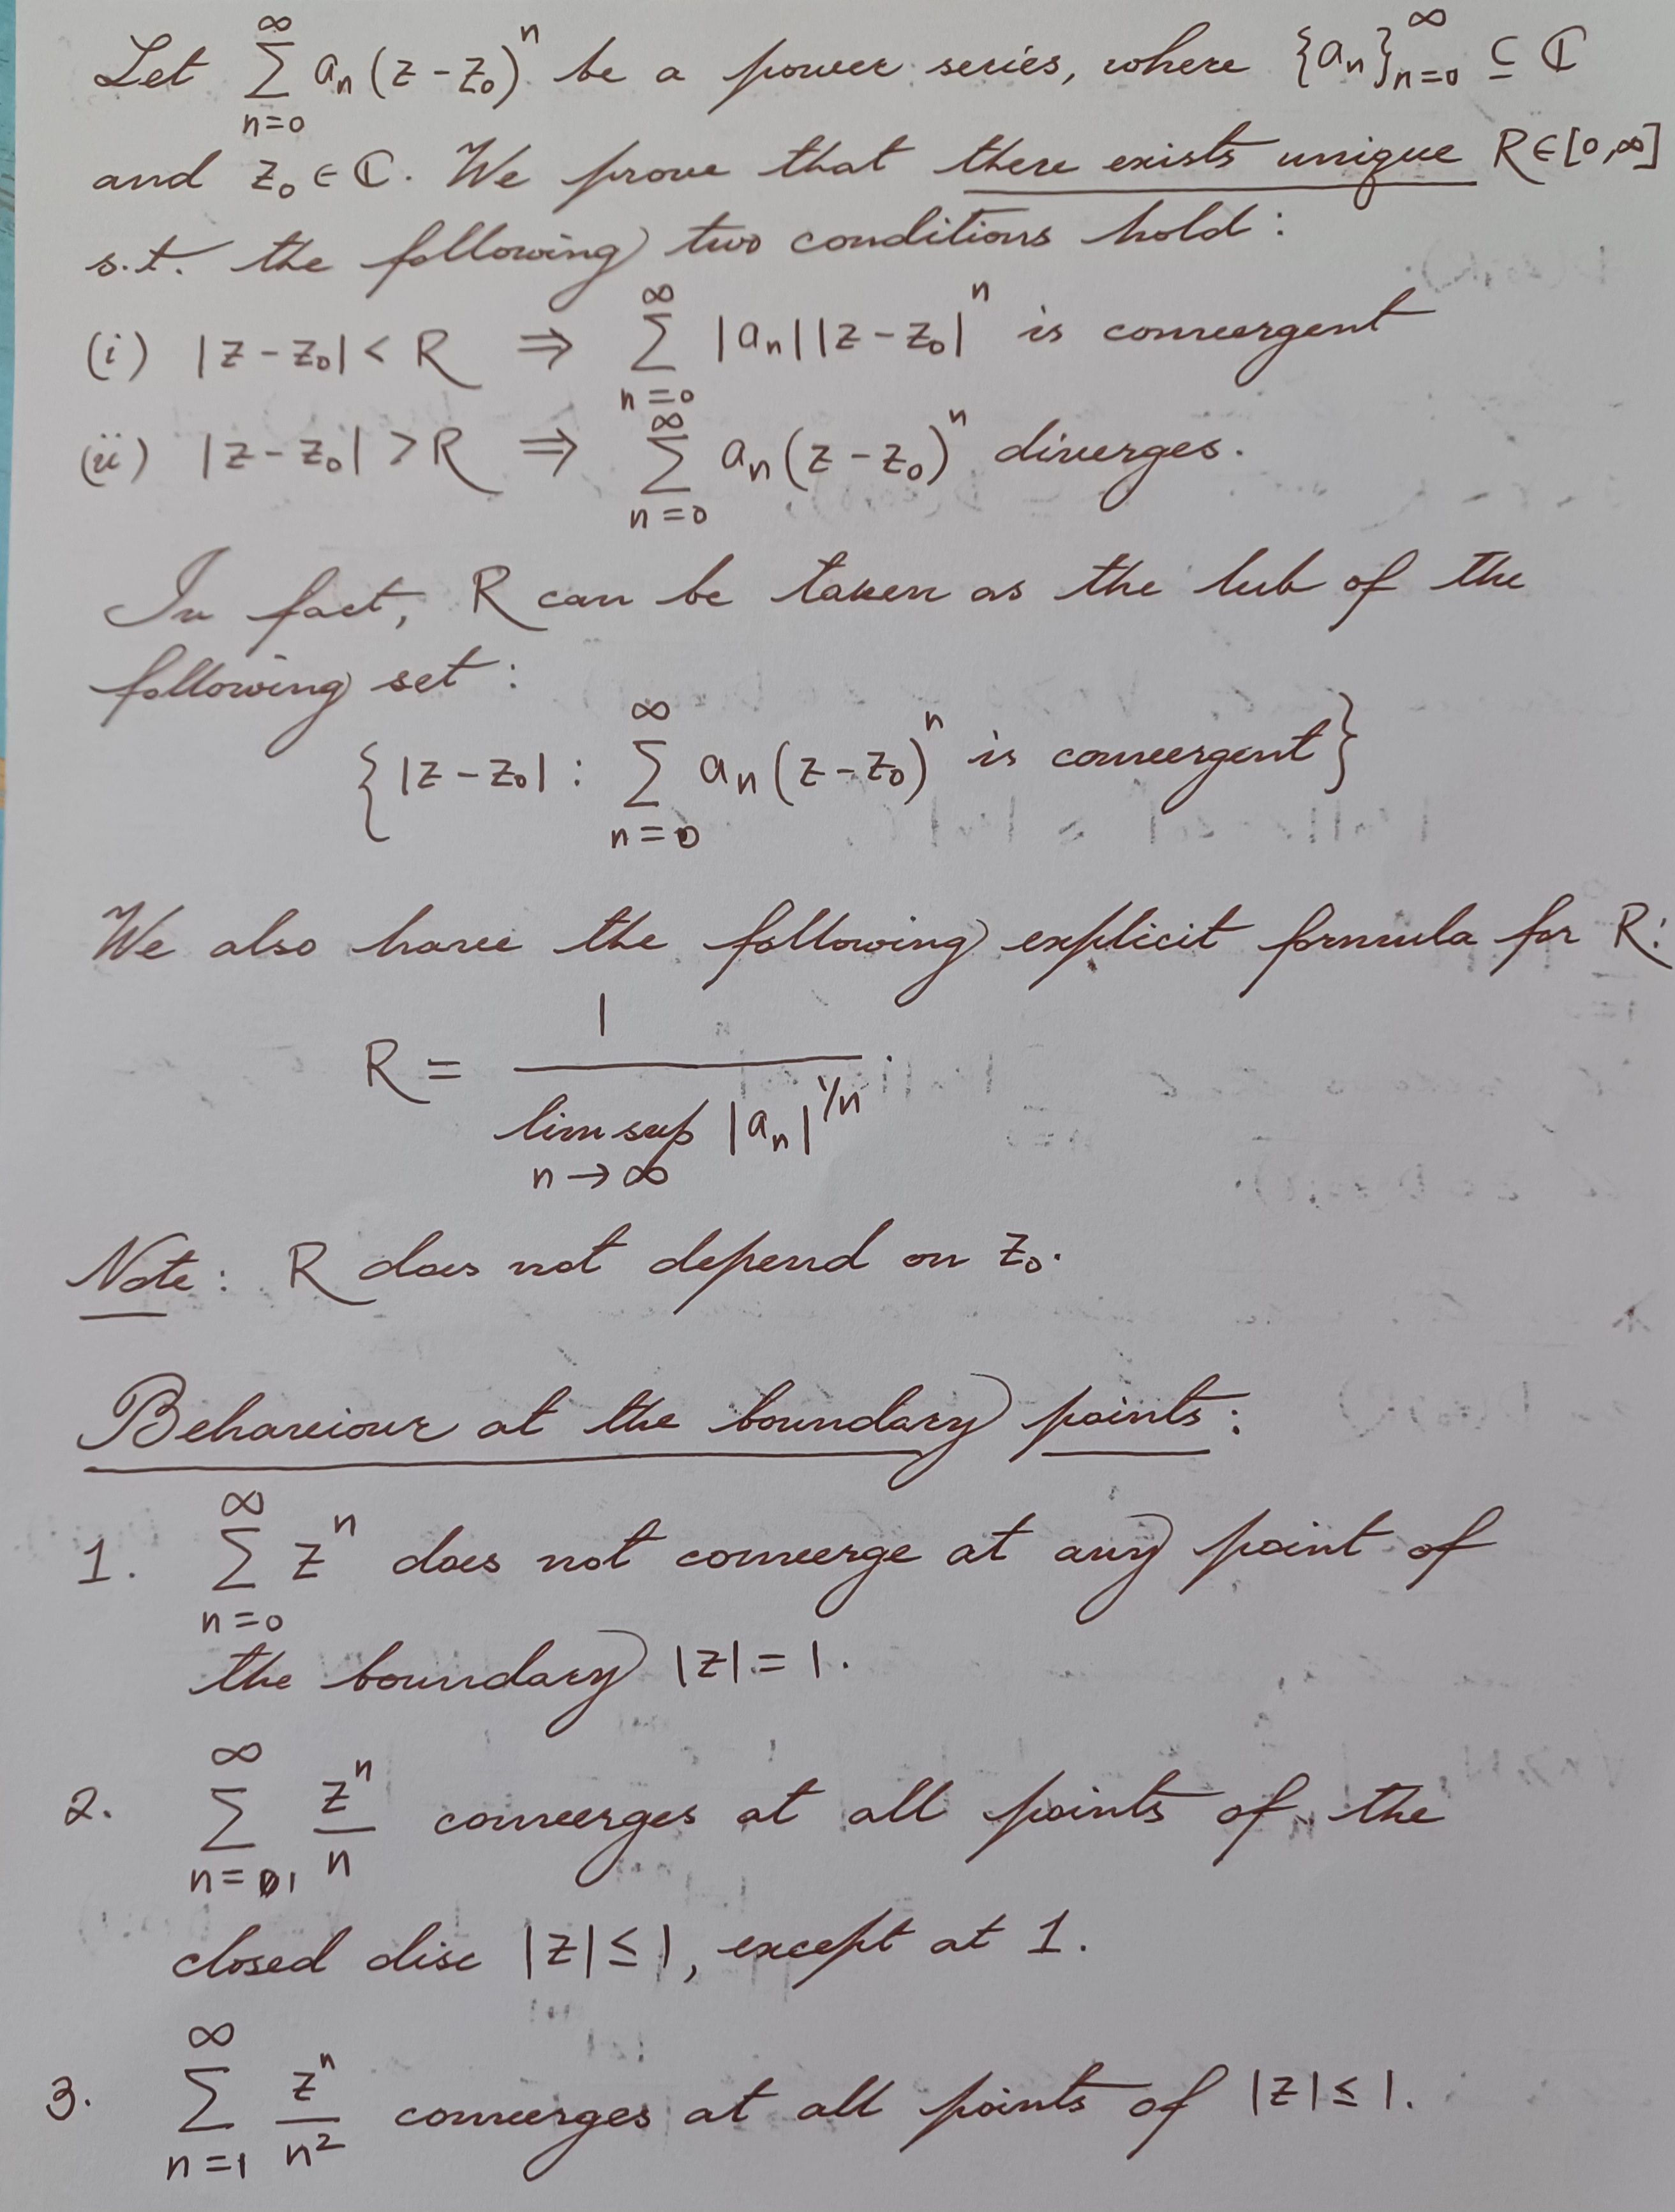 Let $\sum_{n=0}^{\infty} a_n (z - z_0)^n$ be a power series, where $\{a_n\}_{n=0}^{\infty} \subseteq \mathbb{C}$
and $z_0 \in \mathbb{C}$. We prove that there exists unique $R \in [0, \infty]$
s.t. the following two conditions hold:
(i) $|z - z_0| < R \Rightarrow \sum_{n=0}^{\infty} |a_n| |z - z_0|^n$ is convergent
(ii) $|z - z_0| > R \Rightarrow \sum_{n=0}^{\infty} a_n (z - z_0)^n$ diverges.
In fact, R can be taken as the lub of the
following set:
$\{ |z - z_0| : \sum_{n=0}^{\infty} a_n (z - z_0)^n$ is convergent$\}$
We also have the following explicit formula for R:
$R = \frac{1}{\limsup_{n \to \infty} |a_n|^{1/n}}.$
Note: R does not depend on $z_0$.
Behaviour at the boundary points:
1. $\sum_{n=0}^{\infty} z^n$ does not converge at any point of
the boundary $|z| = 1$.
2. $\sum_{n=1}^{\infty} \frac{z^n}{n}$ converges at all points of the
closed disc $|z| \leq 1$, except at 1.
3. $\sum_{n=1}^{\infty} \frac{z^n}{n^2}$ converges at all points of $|z| \leq 1$.